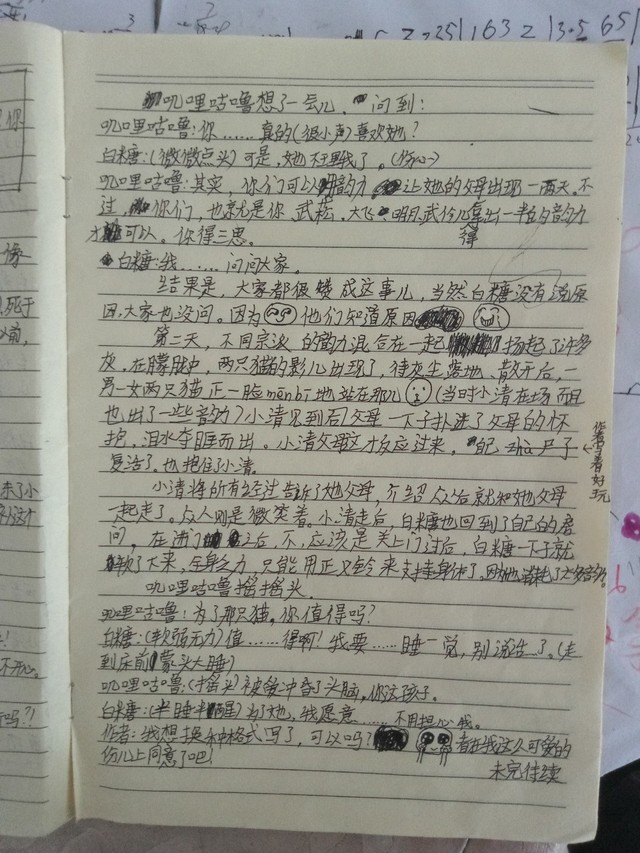 叽哩咕噜想了一会儿，问到：
叽哩咕噜：你……真的（很小声）喜欢她？
白糖：（微微点头）可是，她不理我了。（伤心）
叽哩咕噜：其实，你们可以用韵力让她的父母出现一两天，不
过你们，也就是你，武菘，大飞，明月，武侪儿拿出一半的韵力
才可以。你得三思。
得
白糖：我……问问大家。
结果是，大家都很赞成这事儿，当然白糖没有说原
因，大家也没问。因为他们知道原因
第二天，不同宗派的韵力混合在一起扬起了许多
灰。在朦胧中，两只猫的影儿出现了，待灰尘落地、散开后，一
男一女两只猫正一脸měnbī地站在那儿（当时小青在场而且
也出了一些韵力）小青见到后父母一下子扑进了父母的怀
抱，泪水夺眶而出。小青父母这才反应过来，自己zhà尸子
作者写着好玩
复活了。也抱住了小青。
小青将所有经过告诉了她父母，介绍众人后就和她父母
一起走了。众人则是微笑着。小青走后，白糖也回到了自己的房
间。在进门之后，不，应该是关上门过后，白糖一下子就
软了下来，全身乏力，只能用正义铃来支持身体了，因为他消耗了太多韵力。
叽哩咕噜摇摇头。
叽哩咕噜：为了那只猫，你值得吗？
白糖：（软弱无力）值……得啊！我要……睡一觉，别说话了。（走
到床前蒙头大睡）
叽哩咕噜：（摇头）被爱冲昏了头脑，你这孩子。
白糖：（半睡半醒）为了她，我愿意……不用担心我。
作者：我想换种格式写了，可以吗？看在我这么可爱的
份儿上同意了吧！
未完待续